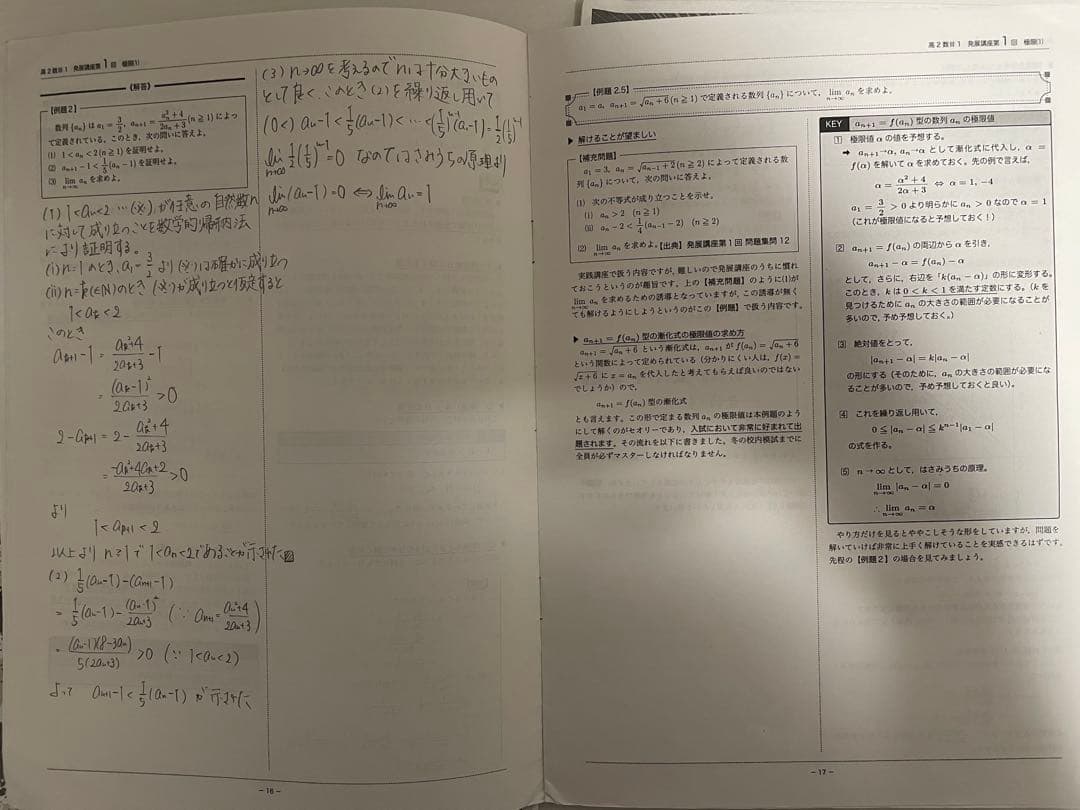 高2数Ⅲ1 発展講座第1回 極限(1)
《解答》
【例題2】
数列{aₙ}は a₁ = 3/2, aₙ₊₁ = (aₙ²+4)/(2aₙ+3) (n≧1) によっ
て定義されている。このとき、次の問いに答えよ。
(1) 1 < aₙ < 2 (n≧1) を証明せよ。
(2) aₙ₊₁−1 < 1/5(aₙ−1) を証明せよ。
(3) lim_{n→∞} aₙ を求めよ。
(1) 1<aₙ<2 …(※) が任意の自然数n
に対して成り立つことを数学的帰納法
により証明する。
(i) n=1のとき、a₁=3/2 より(※)は確かに成り立つ
(ii) n=k(∈N)のとき(※)が成り立つと仮定すると
1<aₖ<2
このとき
aₖ₊₁−1 = (aₖ²+4)/(2aₖ+3) −1
= (aₖ−1)²/(2aₖ+3) >0
2−aₖ₊₁ = 2− (aₖ²+4)/(2aₖ+3)
= (−aₖ²+4aₖ+2)/(2aₖ+3) >0
より
1<aₖ₊₁<2
以上より n≧1で 1<aₙ<2であることが示された
(2) 1/5(aₙ−1)−(aₙ₊₁−1)
= 1/5(aₙ−1)− (aₙ−1)²/(2aₙ+3) (∵ aₙ₊₁= (aₙ²+4)/(2aₙ+3))
= (aₙ−1)(8−3aₙ)/5(2aₙ+3) >0 (∵ 1<aₙ<2)
よって aₙ₊₁−1 < 1/5(aₙ−1) が示された
(3) n→∞を考えるのでnは十分大きいもの
として良く、このとき(2)を繰り返し用いて
(0<) aₙ−1 < 1/5(aₙ₋₁−1) < … < (1/5)ⁿ⁻¹(a₁−1) = 1/2(1/5)ⁿ⁻¹
lim_{n→∞} 1/2(1/5)ⁿ⁻¹=0 なのではさみうちの原理より
lim_{n→∞}(aₙ−1)=0 ⇔ lim_{n→∞} aₙ=1
−16−
高2数Ⅲ1 発展講座第1回 極限(1)
【例題2.5】
a₁ = a, aₙ₊₁ = √(aₙ+6) (n≧1) で定義される数列{aₙ}について、lim_{n→∞} aₙ を求めよ。
▶ 解けることが望ましい
【補充問題】
a₁ = 3, aₙ = √(aₙ₋₁+2) (n≧2) によって定義される数
列{aₙ}について、次の問いに答えよ。
(1) 次の不等式が成り立つことを示せ。
(i) aₙ > 2 (n≧1)
(ii) aₙ−2 < 1/4(aₙ₋₁−2) (n≧2)
(2) lim_{n→∞} aₙ を求めよ。【出典】発展講座第1回 問題集問12
実践講座で扱う内容ですが、難しいので発展講座のうちに慣れ
ておこうというのが趣旨です。上の【補充問題】のように(1)が
lim_{n→∞} aₙ を求めるための誘導となっていますが、この誘導が無く
ても解けるようにしようというのがこの【例題】で扱う内容です。
▶ aₙ₊₁ = f(aₙ) 型の漸化式の極限値の求め方
aₙ₊₁ = √(aₙ+6) という漸化式は、aₙ₊₁ が f(aₙ) = √(aₙ+6)
という関数によって定められている（分かりにくい人は、f(x) =
√(x+6) に x = aₙ を代入したと考えてもらえば良いのではない
でしょうか）ので、
aₙ₊₁ = f(aₙ) 型の漸化式
とも言えます。この形で定まる数列 aₙ の極限値は本例題のよう
にして解くのがセオリーであり、入試において非常に好まれて出
題されます。その流れを以下に書きました。冬の校内模試までに
全員が必ずマスターしなければなりません。
KEY aₙ₊₁ = f(aₙ) 型の数列 aₙ の極限値
〔1〕 極限値 α の値を予想する。
➡ aₙ₊₁→α, aₙ→α として漸化式に代入し、α =
f(α) を解いて α を求めておく。先の例で言えば、
α = (α²+4)/(2α+3) ⇔ α = 1, −4
a₁ = 3/2 > 0 より明らかに aₙ > 0 なので α = 1
（これが極限値になると予想しておく！）
〔2〕 aₙ₊₁ = f(aₙ) の両辺から α を引き、
aₙ₊₁ − α = f(aₙ) − α
として、さらに、右辺を「k(aₙ − α)」の形に変形する。
このとき、k は 0 < k < 1 を満たす定数にする。（k を
見つけるために aₙ の大きさの範囲が必要になることが
多いので、予め予想しておく。）
〔3〕 絶対値をとって、
|aₙ₊₁ − α| = k|aₙ − α|
の形にする（そのために、aₙ の大きさの範囲が必要にな
ることが多いので、予め予想しておくと良い）。
〔4〕 これを繰り返し用いて、
0 ≦ |aₙ − α| ≦ kⁿ⁻¹|a₁ − α|
の式を作る。
〔5〕 n → ∞ として、はさみうちの原理。
lim_{n→∞} |aₙ − α| = 0
∴ lim_{n→∞} aₙ = α
やり方だけを見るとややこしそうな形をしていますが、問題を
解いていけば非常に上手く解けていることを実感できるはずです。
先程の【例題2】の場合を見てみましょう。
−17−